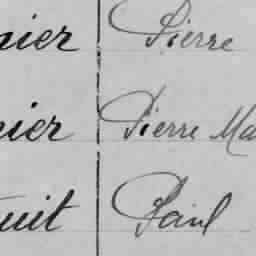 nier Pierre
nier Pierre Ma
uit Paul